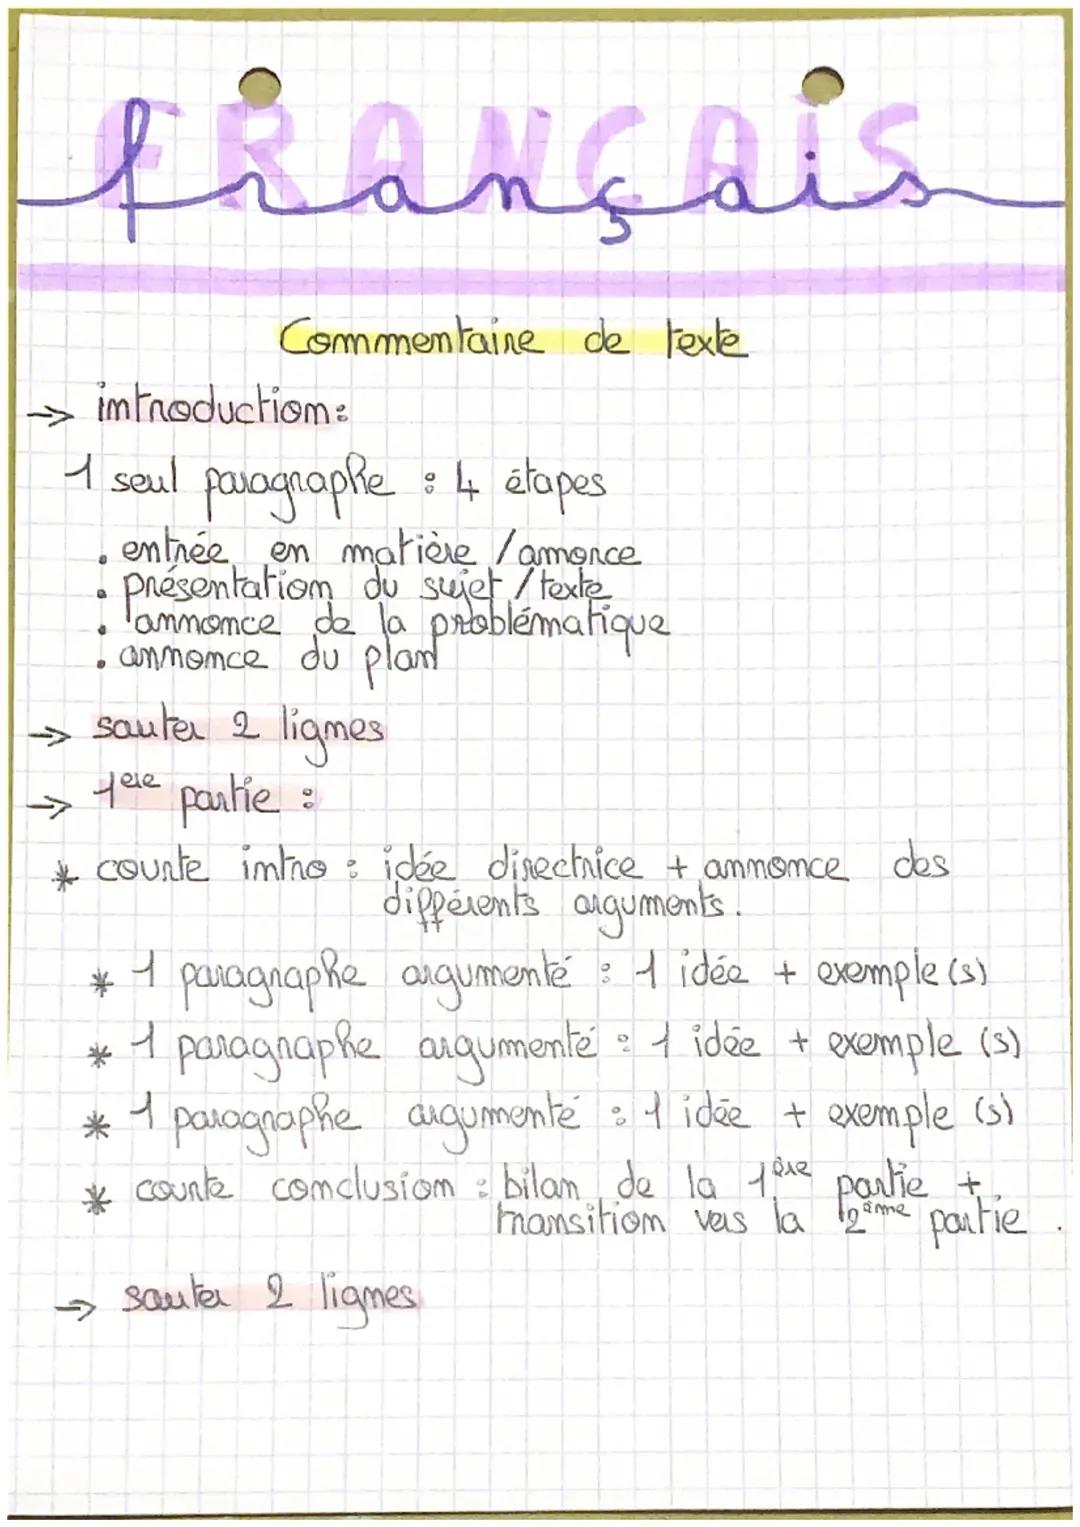 FRANÇAIS
français
Commentaire de texte
→ introduction :
1 seul paragraphe : 4 étapes
• entrée en matière / amorce
• présentation du sujet / texte
• annonce de la problématique
• annonce du plan
→ sauter 2 lignes
→ 1ère partie :
* courte intro : idée directrice + annonce des
différents arguments.
* 1 paragraphe argumenté : 1 idée + exemple (s)
* 1 paragraphe argumenté : 1 idée + exemple (s)
* 1 paragraphe argumenté : 1 idée + exemple (s)
* courte conclusion : bilan de la 1ère partie +
transition vers la 2ème partie.
→ sauter 2 lignes